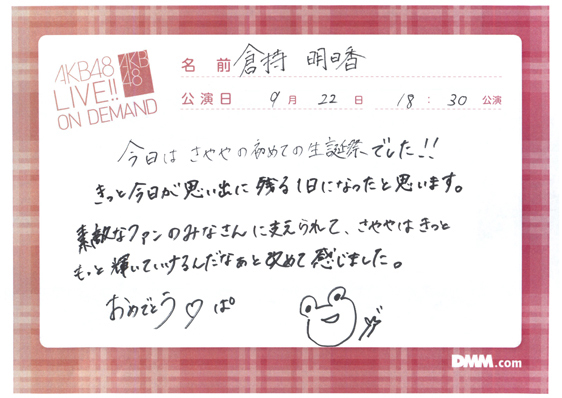 AKB48
LIVE!!
ON DEMAND
AKB
48
名 前 倉持 明日香
公演日 9 月 22 日 18 : 30 公演
今日は さややの初めての生誕祭でした!!
きっと今日が思い出に残る1日になったと思います。
素敵なファンのみなさんに支えられて、さややはきっと
もっと輝いていけるんだなぁと改めて感じました。
おめでとう♡ ぱ
DMM.com